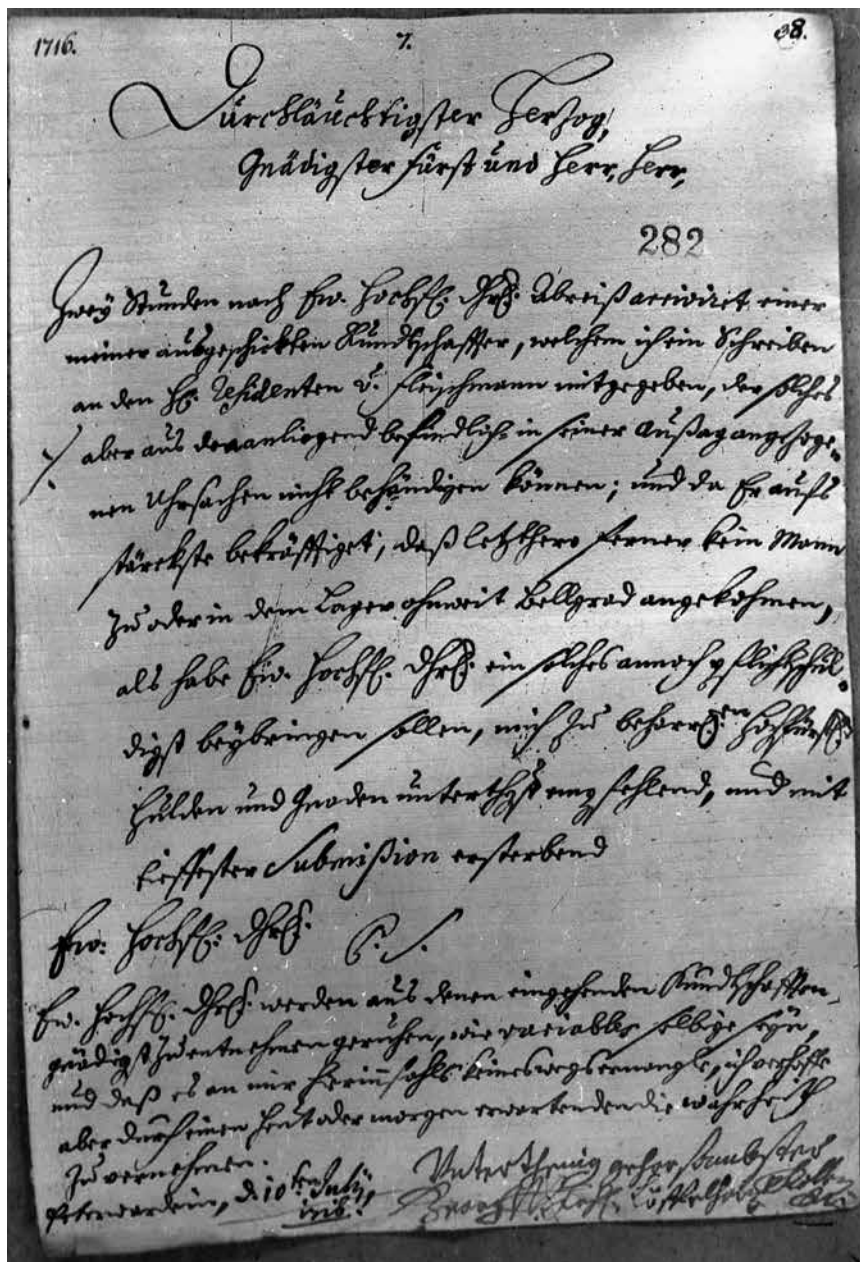 1716. 7. 38.
Durchläuchtigster Herzog,
Gnädigster Fürst und Herr, Herr,
282
Zwey Stunden nach Ew. Hochfl. Dhrl. Abreiß arrivirct einer
meiner ausgeschickten Kundtschaffter, welchem ich ein Schreiben
an den H. Residenten v. Fleischmann mitgegeben, der solches
aber aus denen anliegend befindlich in seiner Außag angezoge-
nen Uhrsachen nicht behändigen können; und da Er aufs
stärckste bekräfftiget, daß letzthero ferner kein Mann
zu oder in dem Lager ohnweit Bellgrad angekohmen,
als habe Ew. Hochfl. Dhrl. ein solches annoch pflichtschul-
digst beybringen sollen, mich zu beharrl.en Hochfürstl.
Hulden und Gnaden unterthgst empfehlend, und mit
tieffester Submißion ersterbend
Ew. Hochfl. Dhrl.
P. S.
Ew. Hochfl. Dhrl. werden aus denen eingehenden Kundtschafften
gnädigst zu entnehmen geruhen, wie variable selbige seyn,
und daß es an mir keineswegs ermangle, ich verhoffe
aber durch einen heut oder morgen erwartenden die wahrheit
zu vernehmen.
Peterwardein, d. 10ten July
Unterthenig gehorsambster
Löffelholz